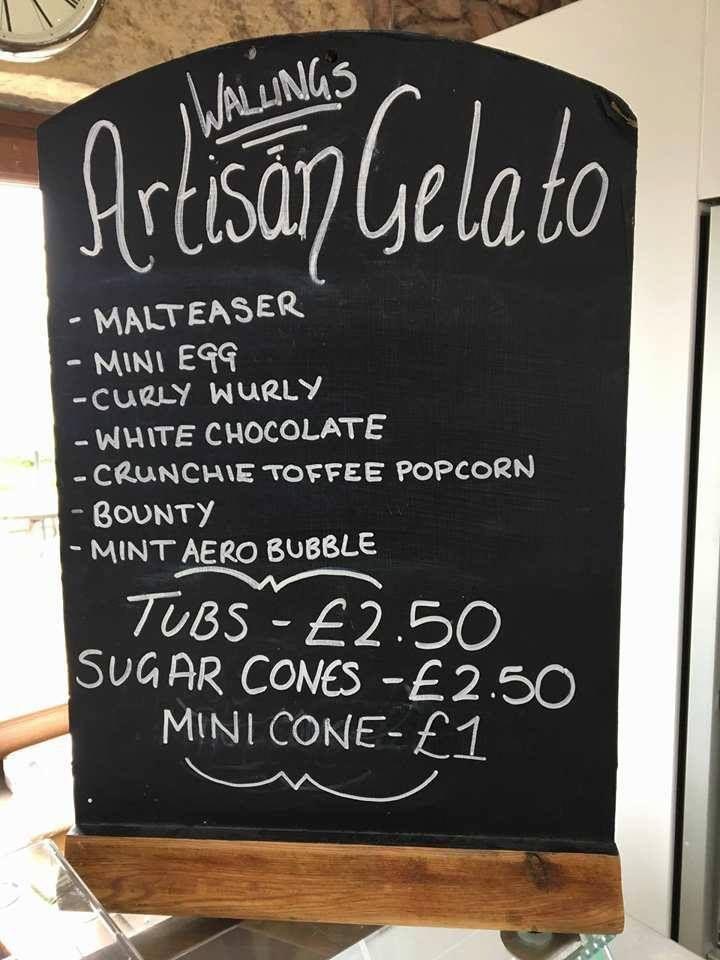 WALLINGS
Artisan Gelato
- MALTEASER
- MINI EGG
- CURLY WURLY
- WHITE CHOCOLATE
- CRUNCHIE TOFFEE POPCORN
- BOUNTY
- MINT AERO BUBBLE
TUBS - £2.50
SUGAR CONES - £2.50
MINI CONE - £1